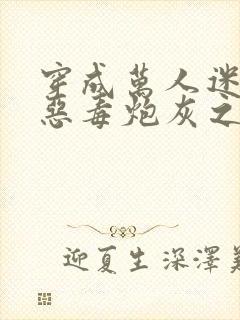 穿成萬人迷
惡毒炮灰之
迎夏生深澤